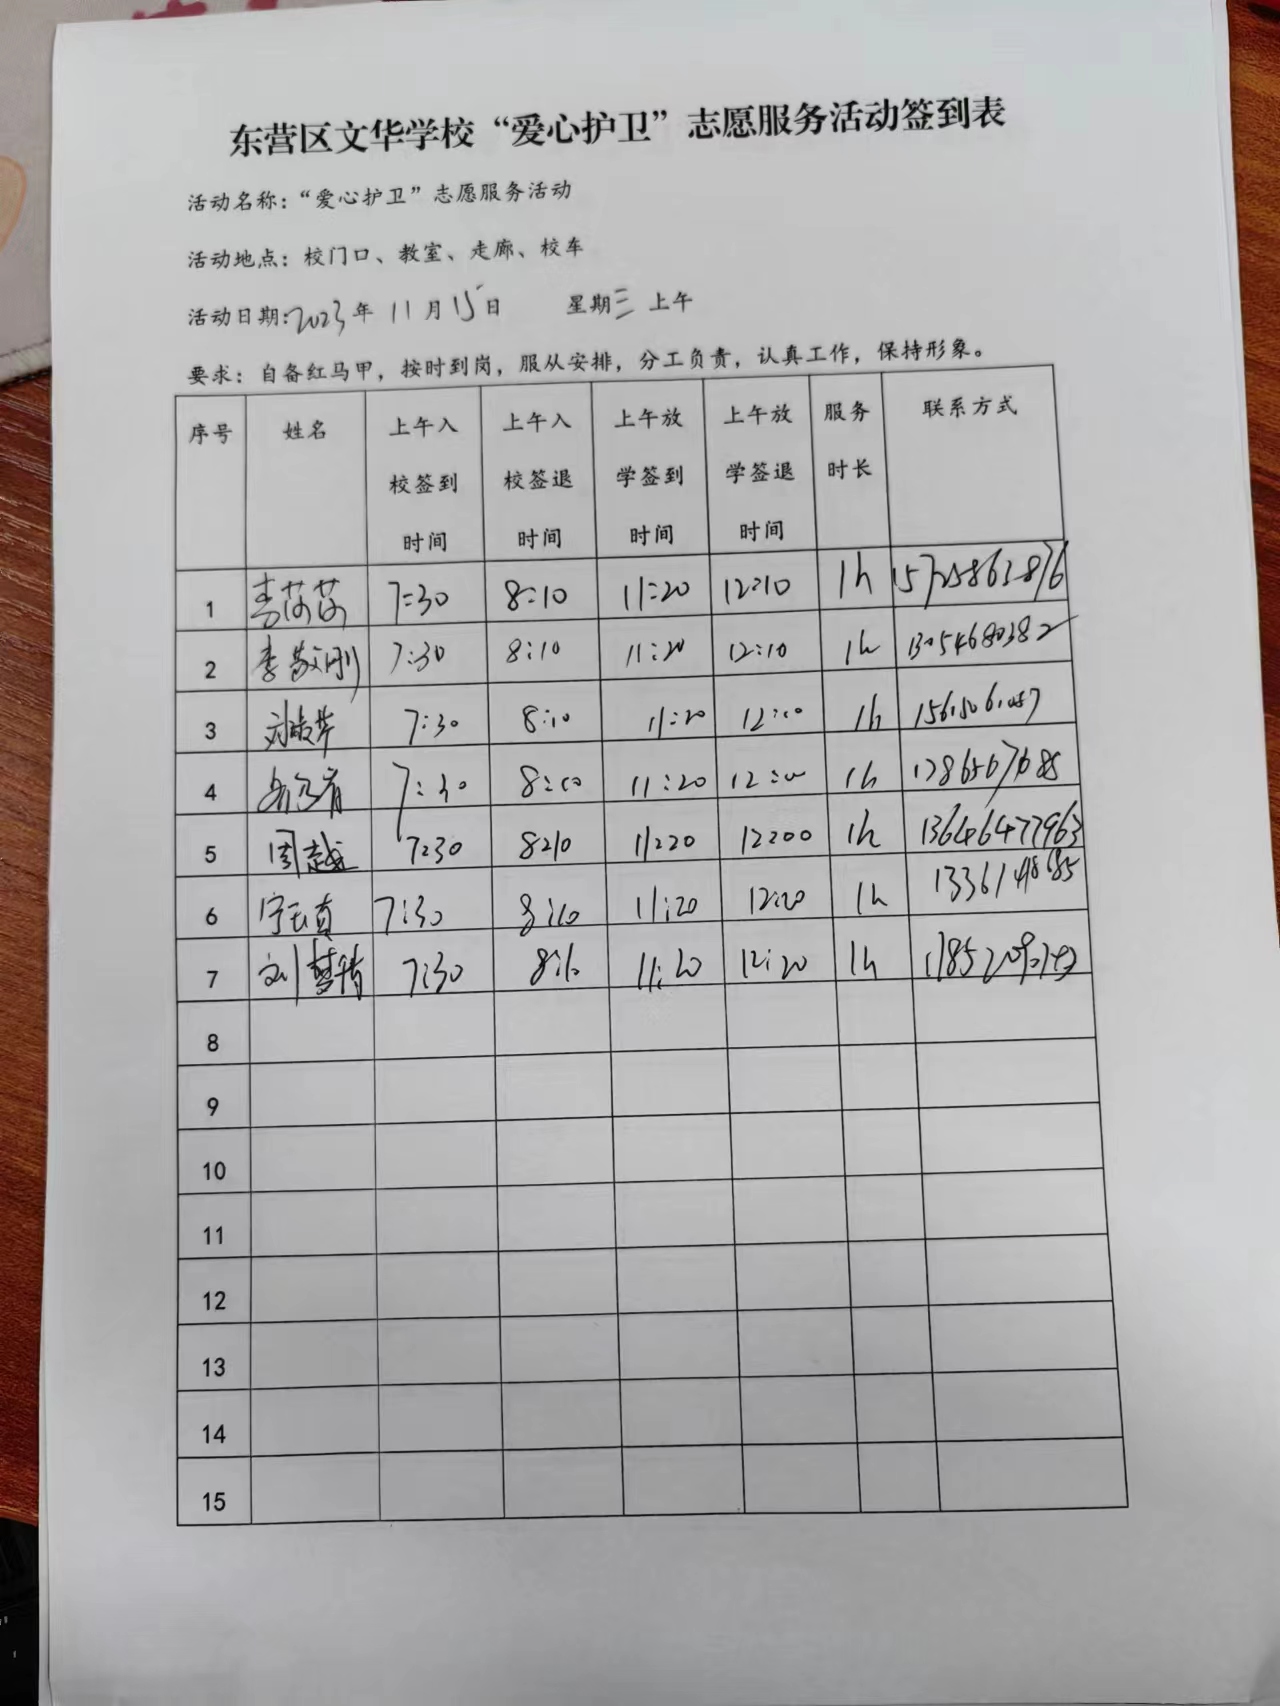 东营区文华学校“爱心护卫”志愿服务活动签到表
活动名称：“爱心护卫”志愿服务活动
活动地点：校门口、教室、走廊、校车
活动日期:2023年 11月15日 星期三 上午
要求：自备红马甲，按时到岗，服从安排，分工负责，认真工作，保持形象。
序号 姓名 上午入校签到时间 上午入校签退时间 上午放学签到时间 上午放学签退时间 服务时长 联系方式
1 李莎莎 7:30 8:10 11:20 12:10 1h
2 李敬刚 7:30 8:10 11:20 12:10 1h 13054680382
3 7:30 8:10 11:20 1h
4 7:30 8:10 11:20 1h
5 周越 7:30 8:10 11:20 12:00 1h 13646477963
6 宁玉真 7:30 8:10 11:20 1h
7 刘梦倩 7:30 8:10 11:20 12:20 1h
8
9
10
11
12
13
14
15